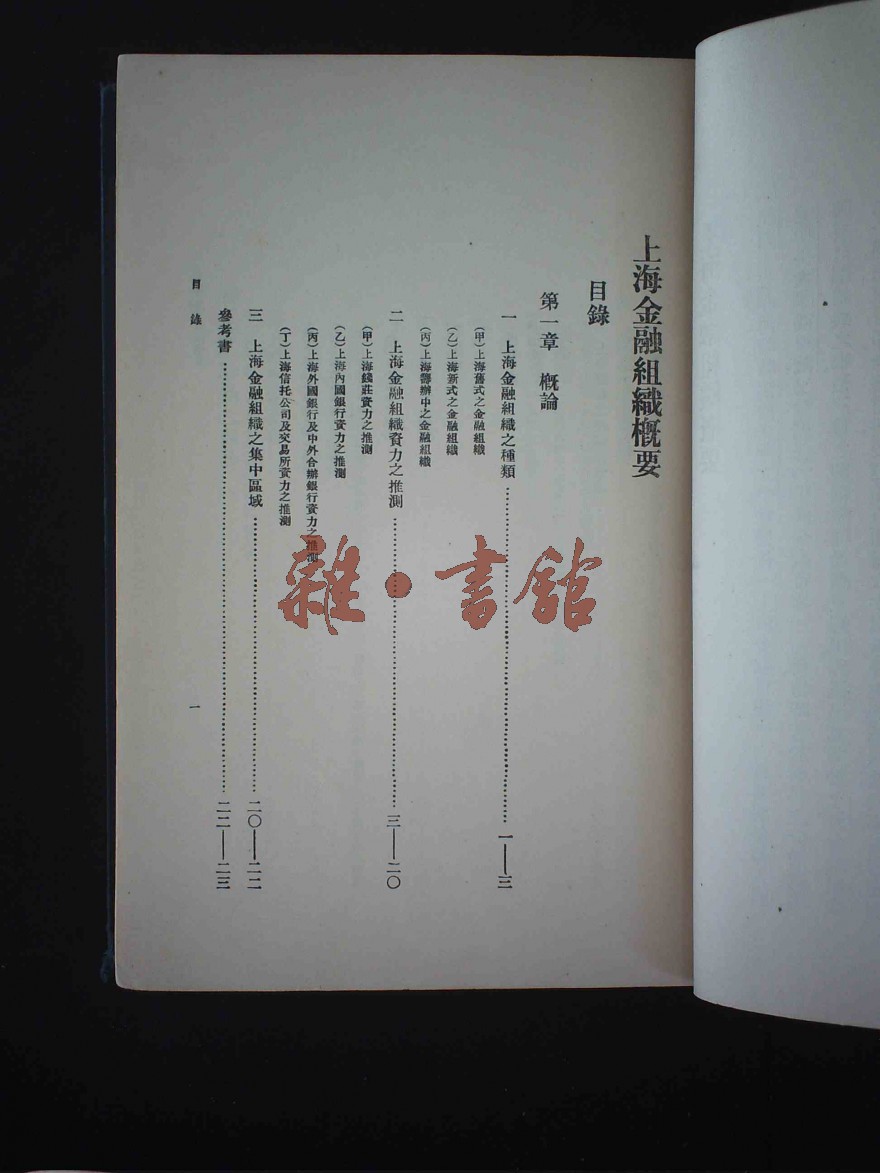 上海金融組織概要
目錄
第一章 概論
一 上海金融組織之種類…………一——三
(甲)上海舊式之金融組織
(乙)上海新式之金融組織
(丙)上海籌辦中之金融組織
二 上海金融組織資力之推測…………三——二〇
(甲)上海錢莊資力之推測
(乙)上海內國銀行資力之推測
(丙)上海外國銀行及中外合辦銀行資力之推測
(丁)上海信托公司及交易所資力之推測
三 上海金融組織之集中區域…………二〇——二二
參考書…………二二——二三
目錄
一
雜·書館